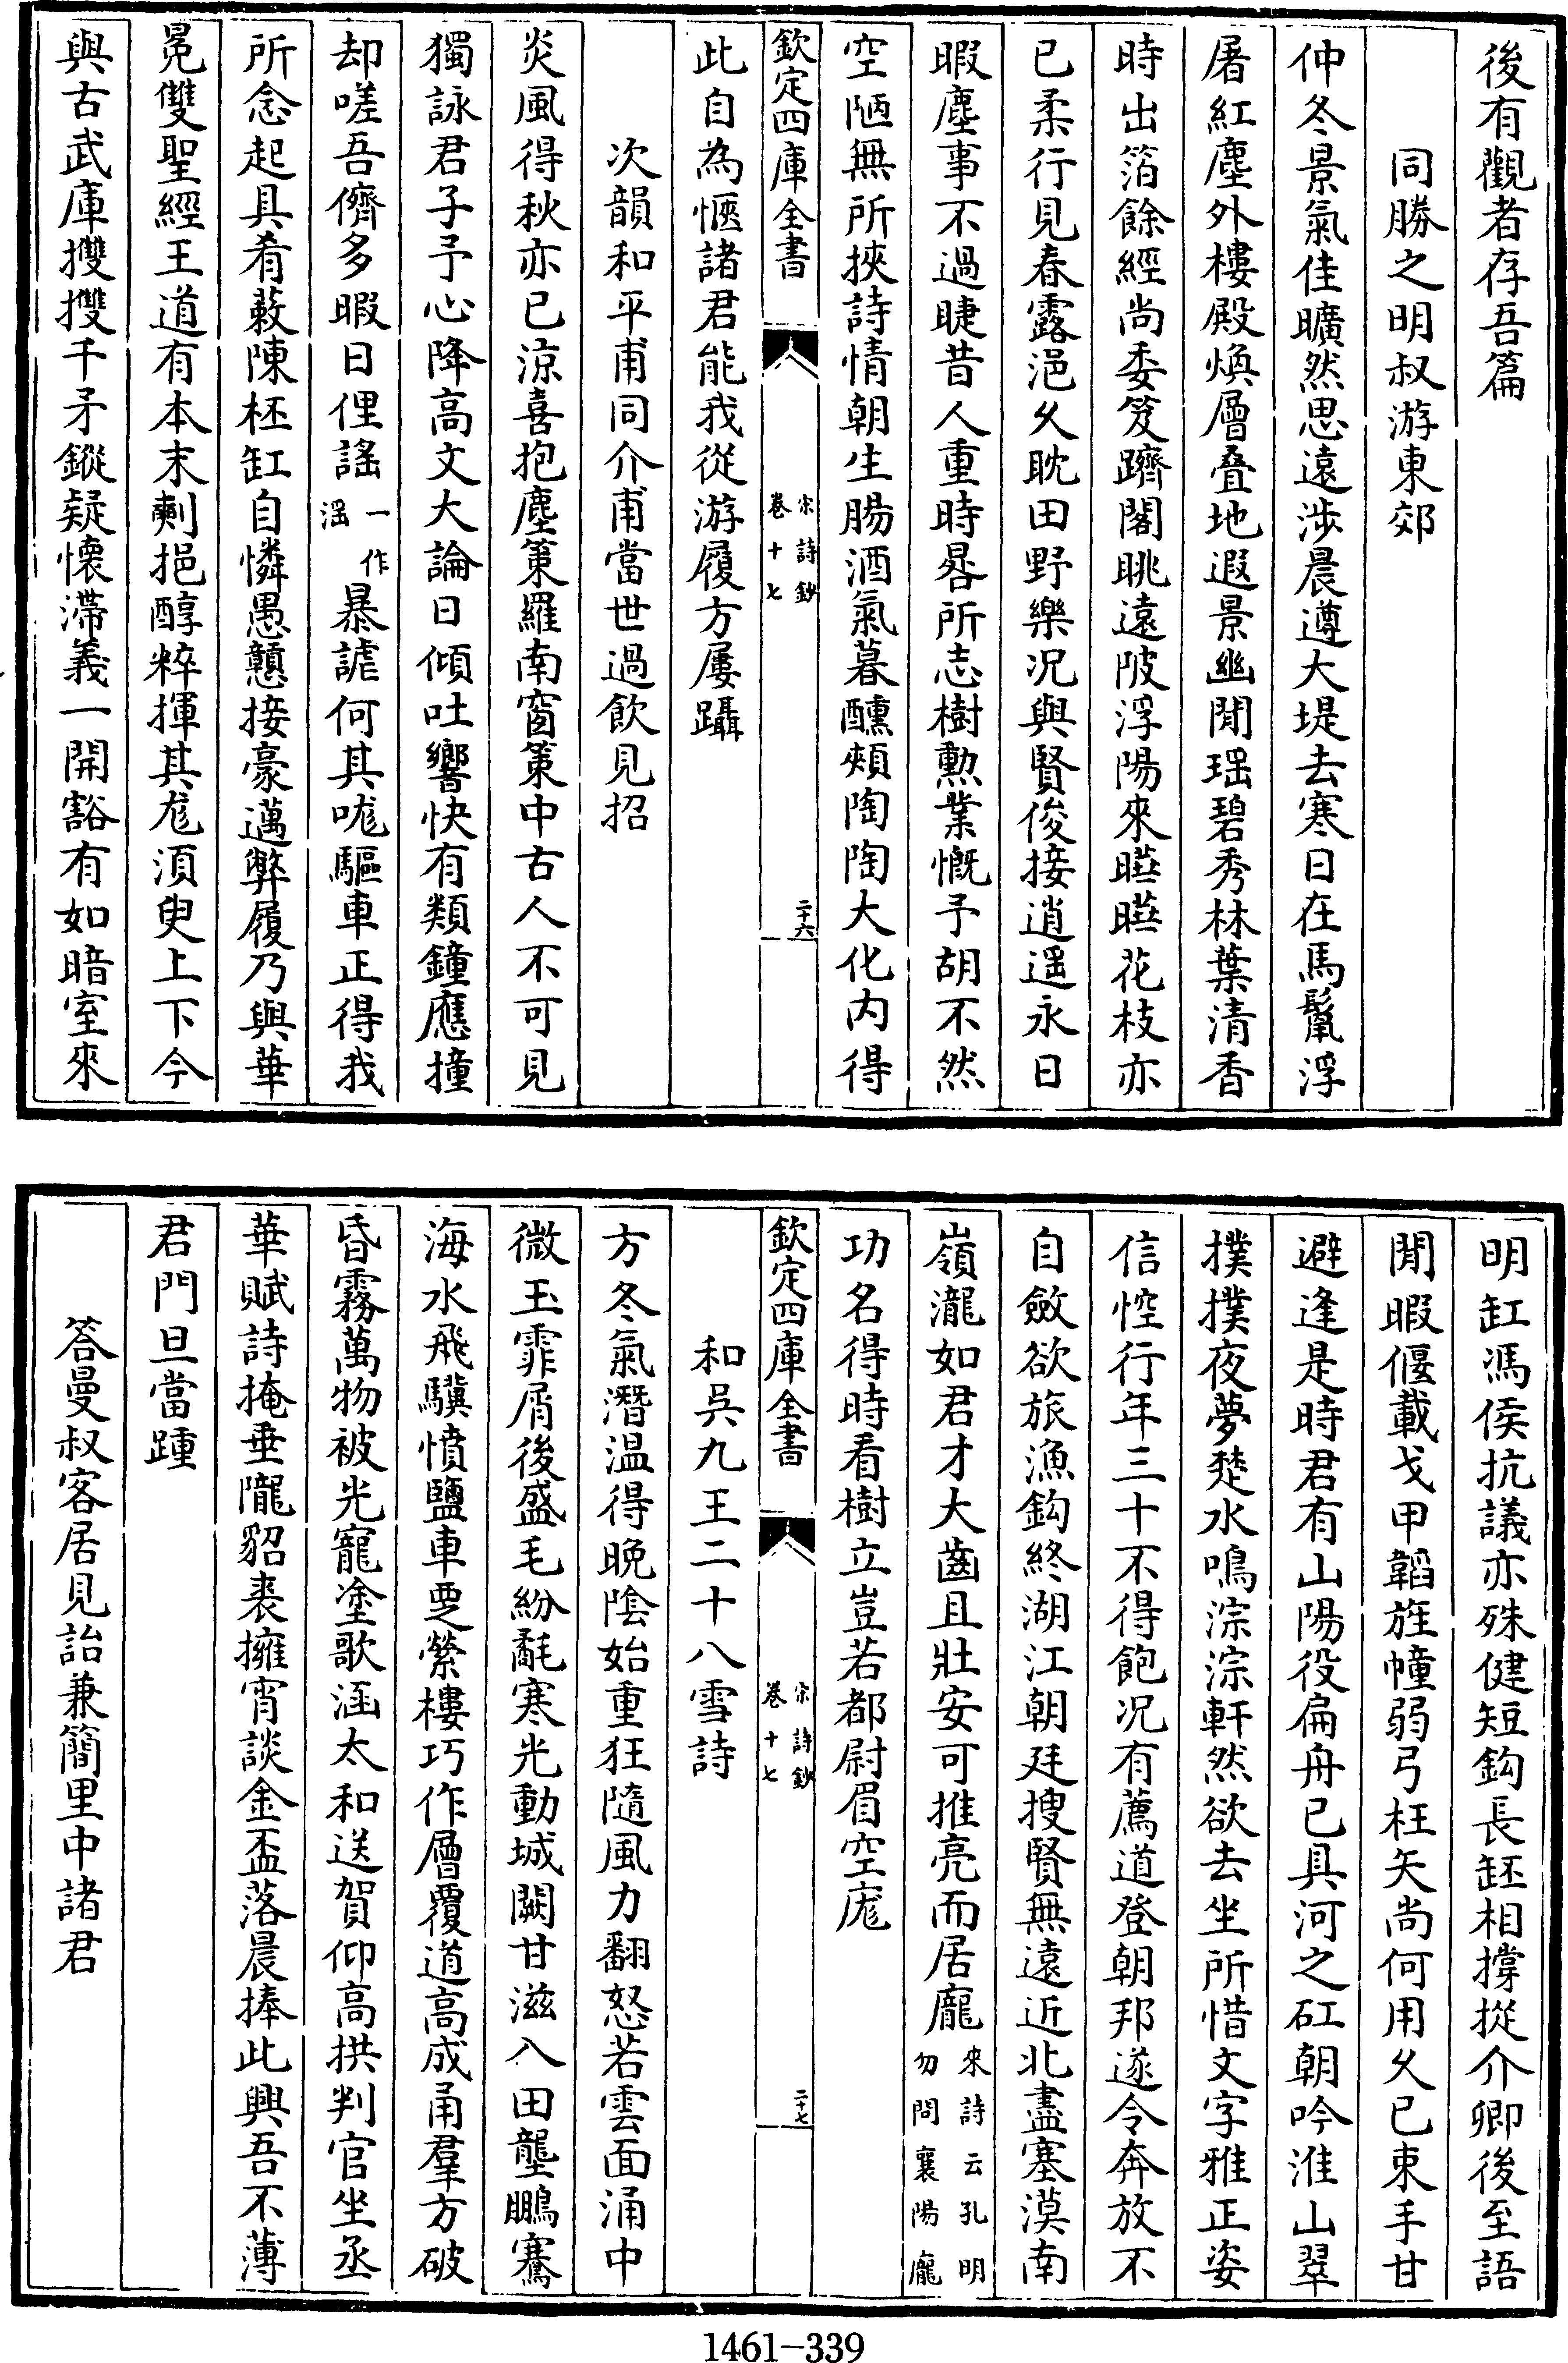 後有觀者存吾篇
同勝之明叔游東郊
仲冬景氣佳曠然思遠涉晨遵大堤去寒日在馬鬛浮
屠紅塵外樓殿煥層疊地遐景幽閒瑶碧秀林葉清香
時出箔餘經尚委笈躋閣眺遠陂浮陽來曣曣花枝亦
已柔行見春露浥久耽田野樂况與賢俊接逍遥永日
暇塵事不過睫昔人重時晷所志樹勲業慨予胡不然
空陋無所挾詩情朝生腸酒氣暮醺頰陶陶大化内得
此自為愜諸君能我從游履方屢躡
欽定四庫全書
宋詩鈔
卷十七
二十六
次韻和平甫同介甫當世過飲見招
炎風得秋亦已涼喜抱塵䇿羅南窗䇿中古人不可見
獨詠君子予心降高文大論日傾吐響快有類鐘應撞
却嗟吾儕多暇日俚謡一作滛暴謔何其哤驅車正得我
所念起具肴蔌陳柸缸自憐愚戇接豪邁弊履乃與華
冕雙聖經王道有本末剸挹醇粹揮其尨須臾上下今
與古武庫㩳㩳千矛鏦疑懷滯義一開豁有如暗室來
明缸馮侯抗議亦殊健短鈎長䤵相撐摐介卿後至語
閒暇偃載戈甲韜旌幢弱弓枉矢尚何用久已束手甘
避逢是時君有山陽役扁舟已具河之矼朝吟淮山翠
撲撲夜夢楚水鳴淙淙軒然欲去坐所惜文字雅正姿
信悾行年三十不得飽况有薦道登朝邦遂令奔放不
自斂欲旅漁鈎終湖江朝廷搜賢無遠近北盡塞漠南
嶺瀧如君才大齒且壯安可推亮而居龐來詩云孔明勿問襄陽龐
功名得時看樹立豈若都尉眉空庬
欽定四庫全書
宋詩鈔
卷十七
二十七
和吳九王二十八雪詩
方冬氣潛温得晚陰始重狂隨風力翻怒若雲面涌中
微玉霏屑後盛毛紛毻寒光動城闕甘滋入田壟鵬騫
海水飛驥憤鹽車覂縈樓巧作層覆道高成甬羣方破
昏霧萬物被光寵塗歌涵太和送賀仰高拱判官坐丞
華賦詩掩垂隴貂裘擁宵談金盃落晨捧此興吾不薄
君門旦當踵
答曼叔客居見詒兼簡里中諸君
1461-339